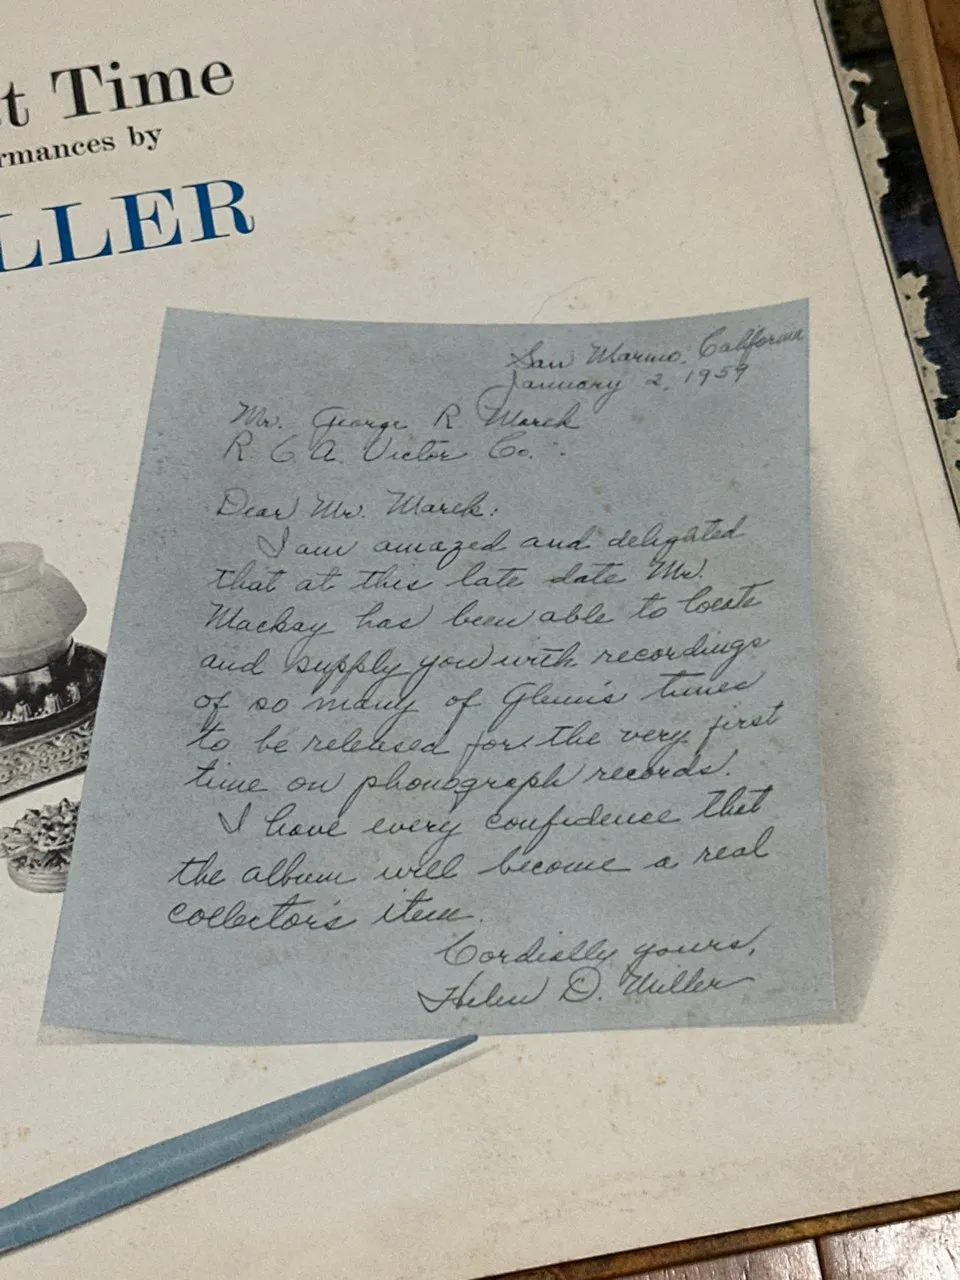 t Time
rmances by
LLER
San Marino, California
January 2, 1959
Mr. George R Marek
R. C. A. Victor Co.
Dear Mr. Marek:
I am amazed and delighted
that at this late date Mr.
Mackay has been able to locate
and supply you with recordings
of so many of Glenn's tunes
to be released for the very first
time on phonograph records.
I have every confidence that
the album will become a real
collector's item.
Cordially yours,
Helen D. Miller